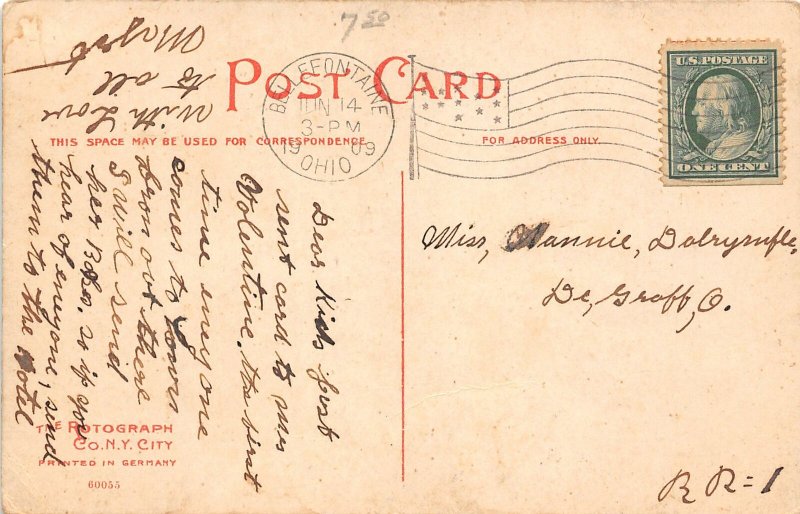 7 50
POST CARD
BELLEFONTAINE
JUN 14
3-PM
1909
OHIO
U.S. POSTAGE
ONE CENT
THIS SPACE MAY BE USED FOR CORRESPONDENCE
FOR ADDRESS ONLY.
Dear Kids Just
sent card to Mrs
Volentine. the first
time eney one
comes to town
from out there
I will send
her B
hear of eneyone, send
them to the Hotel
With Love
to all
Miss, Nannie, Dalrymple,
De, Graff, O.
R R = 1
THE ROTOGRAPH
CO. N.Y. CITY
PRINTED IN GERMANY
60055